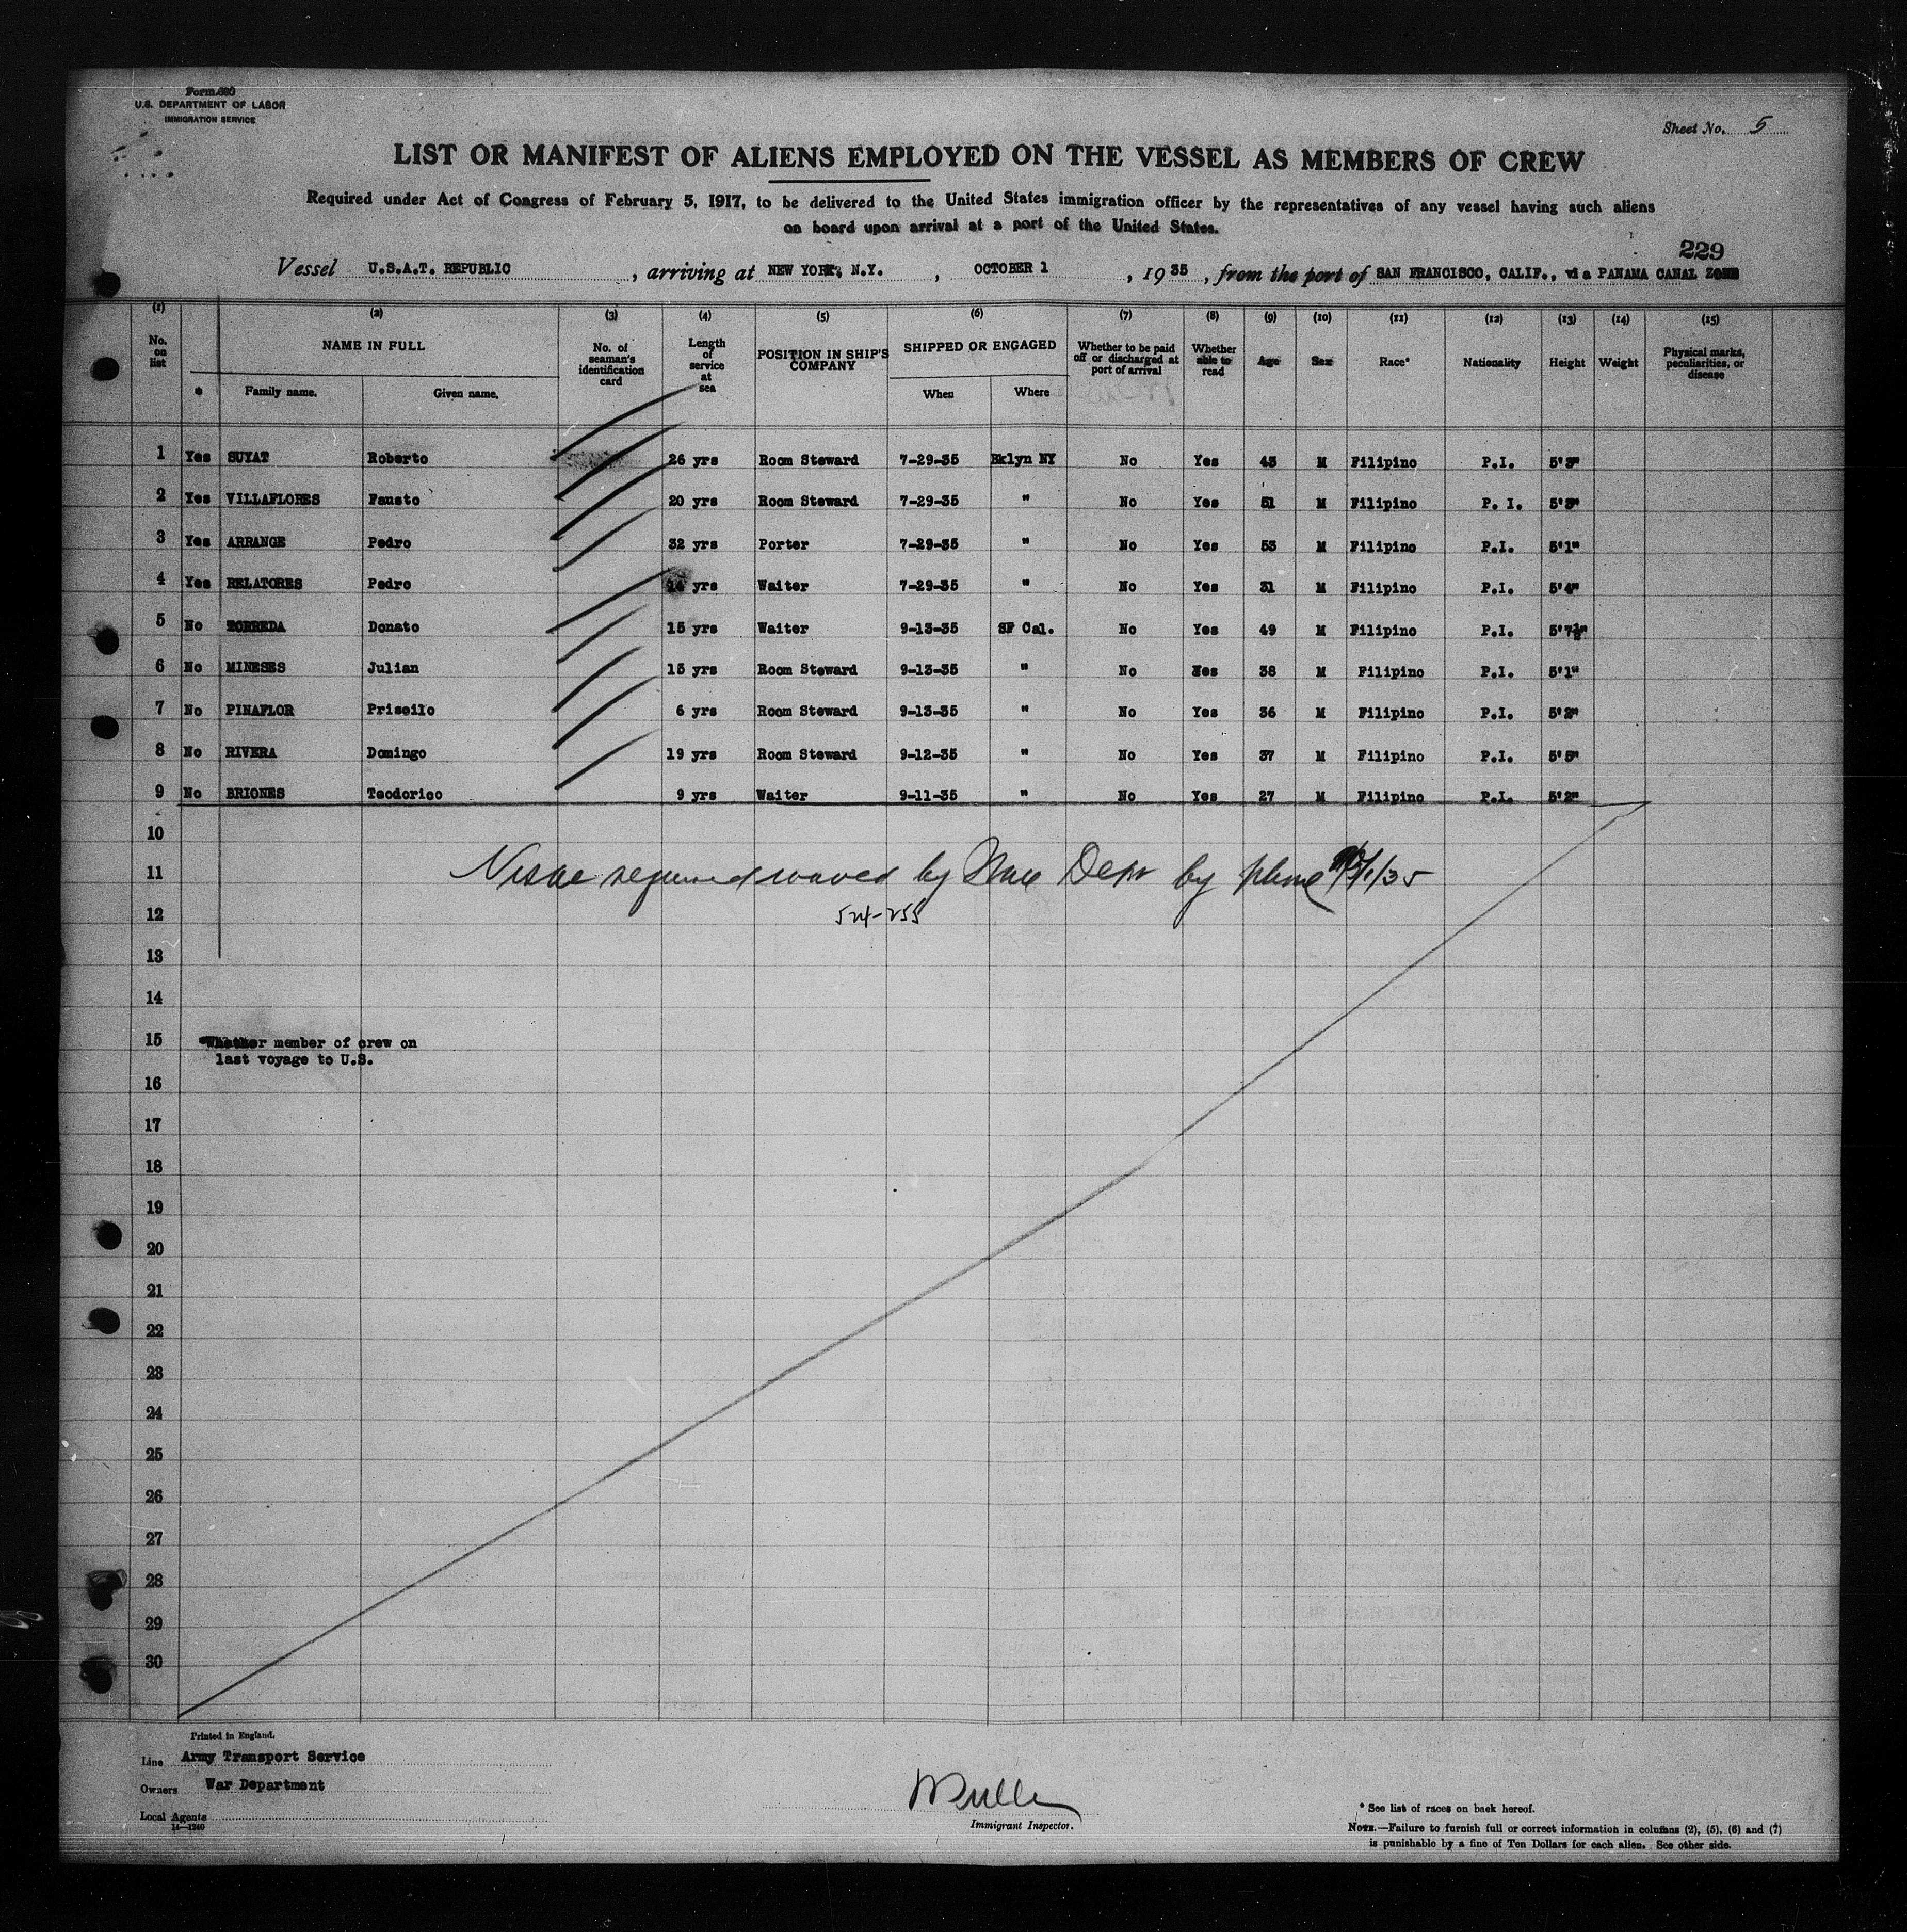 Form 680
U.S. DEPARTMENT OF LABOR
IMMIGRATION SERVICE
Sheet No. 5
LIST OR MANIFEST OF ALIENS EMPLOYED ON THE VESSEL AS MEMBERS OF CREW
Required under Act of Congress of February 5, 1917, to be delivered to the United States immigration officer by the representatives of any vessel having such aliens
on board upon arrival at a port of the United States.
229
Vessel U.S.A.T. REPUBLIC, arriving at NEW YORK, N.Y., OCTOBER 1, 1935, from the port of SAN FRANCISCO, CALIF., via PANAMA CANAL ZONE
(1) (2) (3) (4) (5) (6) (7) (8) (9) (10) (11) (12) (13) (14) (15)
No. on list NAME IN FULL No. of seaman's identification card Length of service at sea POSITION IN SHIP'S COMPANY SHIPPED OR ENGAGED Whether to be paid off or discharged at port of arrival Whether able to read Age Sex Race* Nationality Height Weight Physical marks, peculiarities, or disease
* Family name. Given name. When Where
1 Yes SUYAT Roberto 26 yrs Room Steward 7-29-35 Bklyn NY No Yes 43 M Filipino P.I. 5'3"
2 Yes VILLAFLORES Fausto 20 yrs Room Steward 7-29-35 " No Yes 51 M Filipino P. I. 5'3"
3 Yes ARRANGE Pedro 32 yrs Porter 7-29-35 " No Yes 53 M Filipino P.I. 5'1"
4 Yes RELATORES Pedro yrs Waiter 7-29-35 " No Yes 31 M Filipino P.I. 5'4"
5 No TORREDA Donato 15 yrs Waiter 9-13-35 SF Cal. No Yes 49 M Filipino P.I. 5'7½"
6 No MINESES Julian 15 yrs Room Steward 9-13-35 " No Yes 38 M Filipino P.I. 5'1"
7 No PINAFLOR Prisello 6 yrs Room Steward 9-13-35 " No Yes 36 M Filipino P.I. 5'2"
8 No RIVERA Domingo 19 yrs Room Steward 9-12-35 " No Yes 37 M Filipino P.I. 5'5"
9 No BRIONES Teodorico 9 yrs Waiter 9-11-35 " No Yes 27 M Filipino P.I. 5'2"
10
11 by Dept by phone 10/1/35
12 524-255
13
14
15 *Whether member of crew on
last voyage to U.S.
16
17
18
19
20
21
22
23
24
25
26
27
28
29
30
Printed in England.
Line Army Transport Service
Owners War Department
Local Agents
14—1240
Immigrant Inspector.
* See list of races on back hereof.
NOTE.—Failure to furnish full or correct information in columns (2), (5), (6) and (7)
is punishable by a fine of Ten Dollars for each alien. See other side.